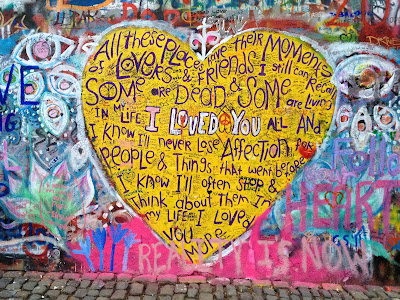 All these Places have their Moments
of Lovers & Friends I still can Recall
Some are Dead & Some are Living
In my Life I LOVED YOU All AND
I know I'll never lose Affection for
People & Things that went before
I know I'll often stop &
Think about them In
my life I Loved
You
More
HEART
REALITY IS NOW